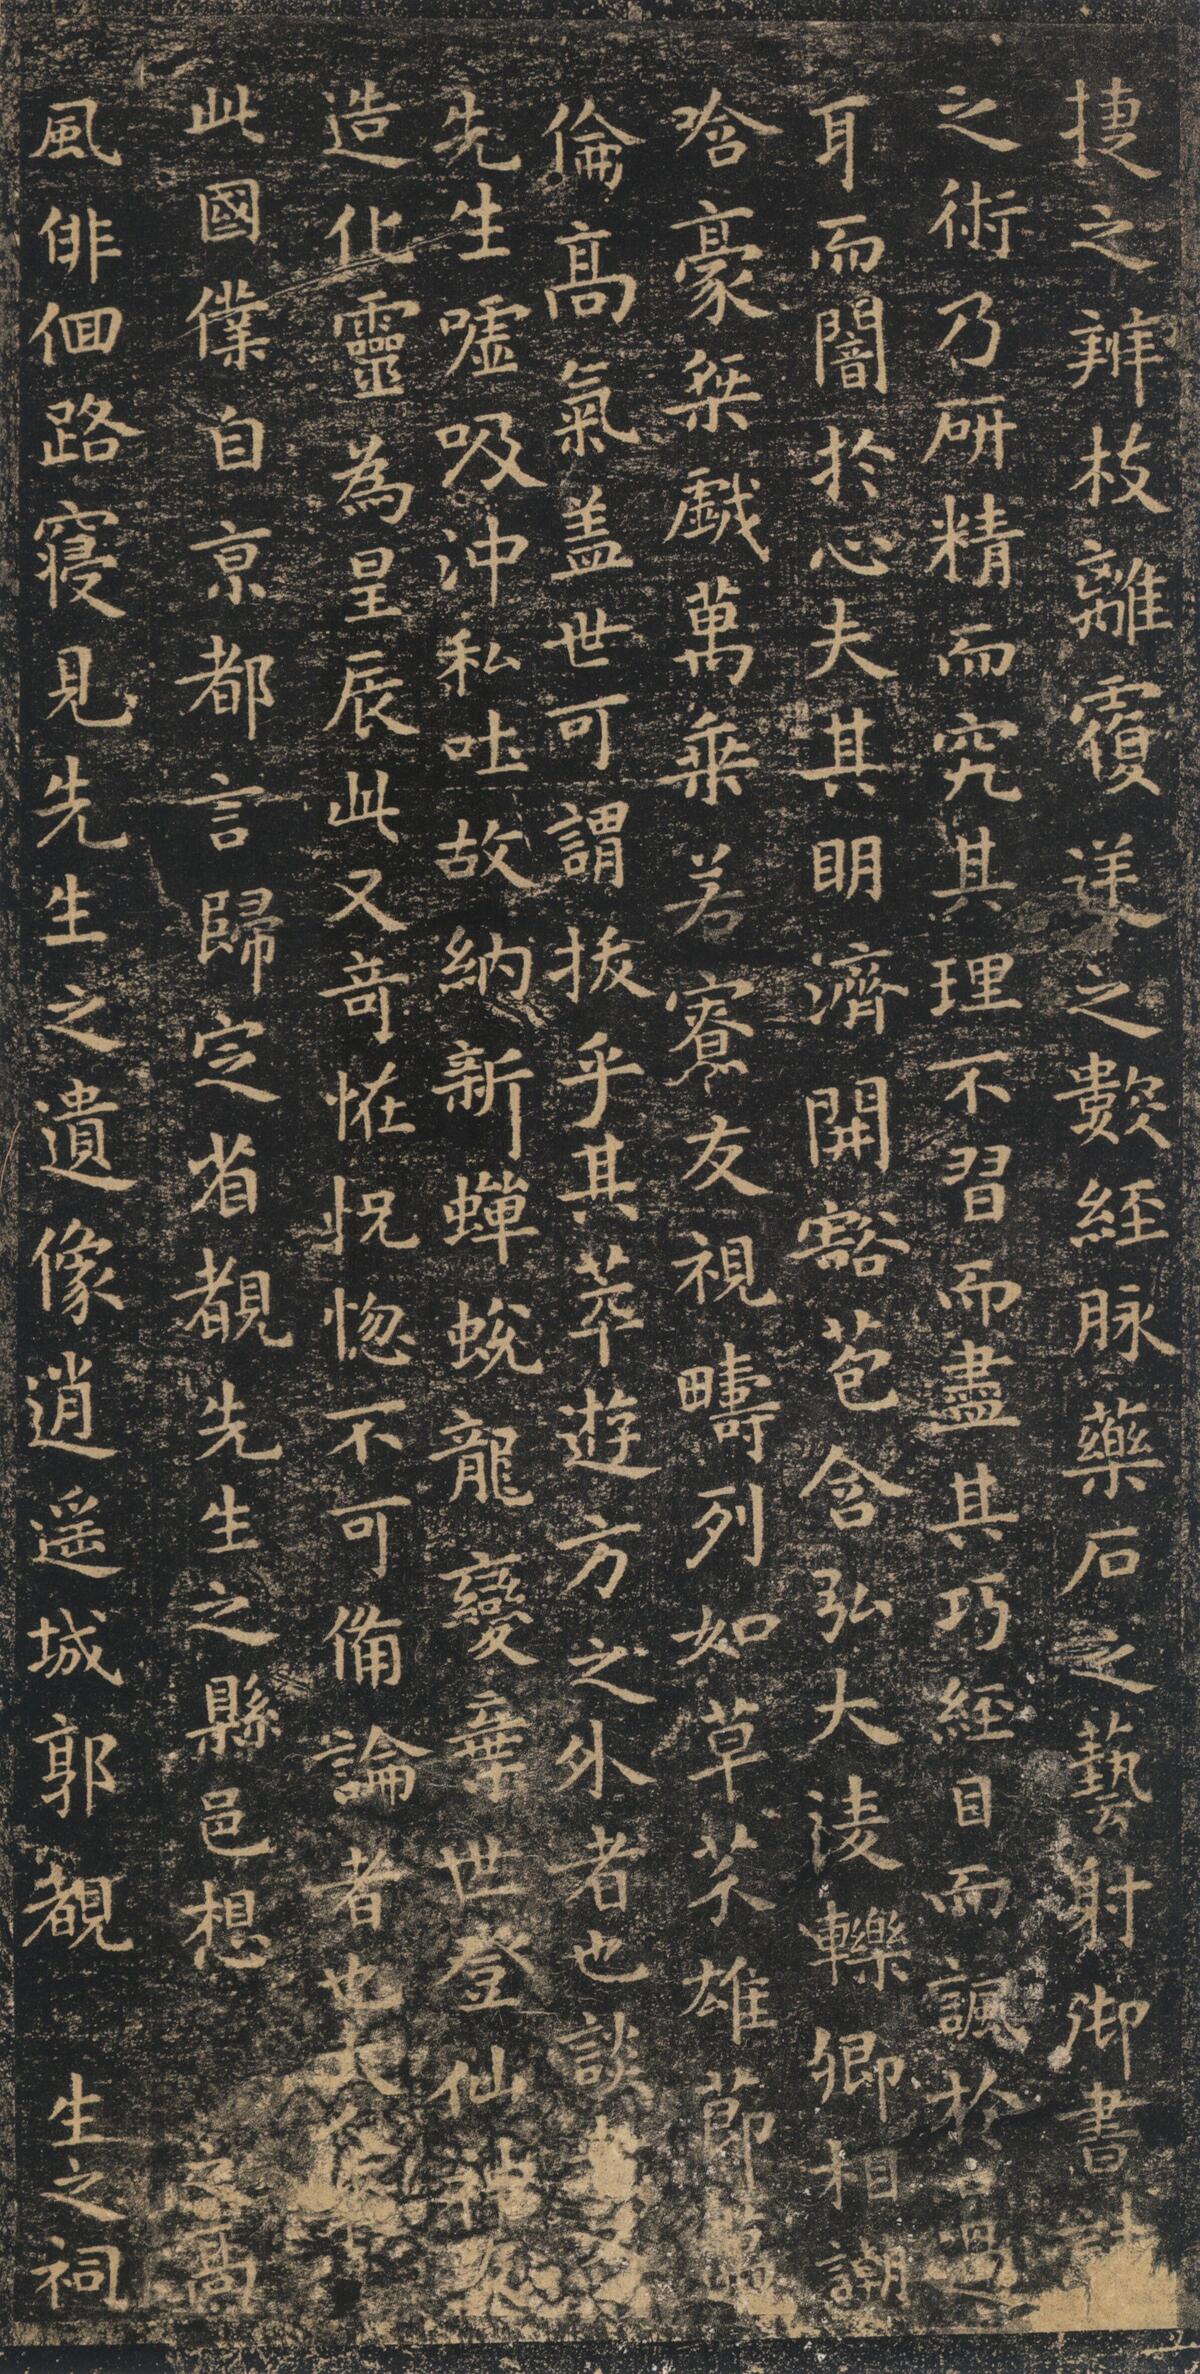 捷之辨枝離覆逆之數經脉藥石之藝射御書計
之術乃研精而究其理不習而盡其巧經目而諷於口過
耳而闇於心夫其明濟開豁苞含弘大淩轢卿相謿
哈豪桀戲萬乘若寮友視疇列如草芥雄節邁
倫高氣盖世可謂拔乎其萃遊方之外者也談者又
先生噓吸沖和吐故納新蟬蛻龍變棄世登仙神友
造化靈為星辰此又奇怪怳惚不可備論者也大人來
此國僕自京都言歸定省覩先生之縣邑想 之高
風俳佪路寢見先生之遺像逍遥城郭覩 生之祠